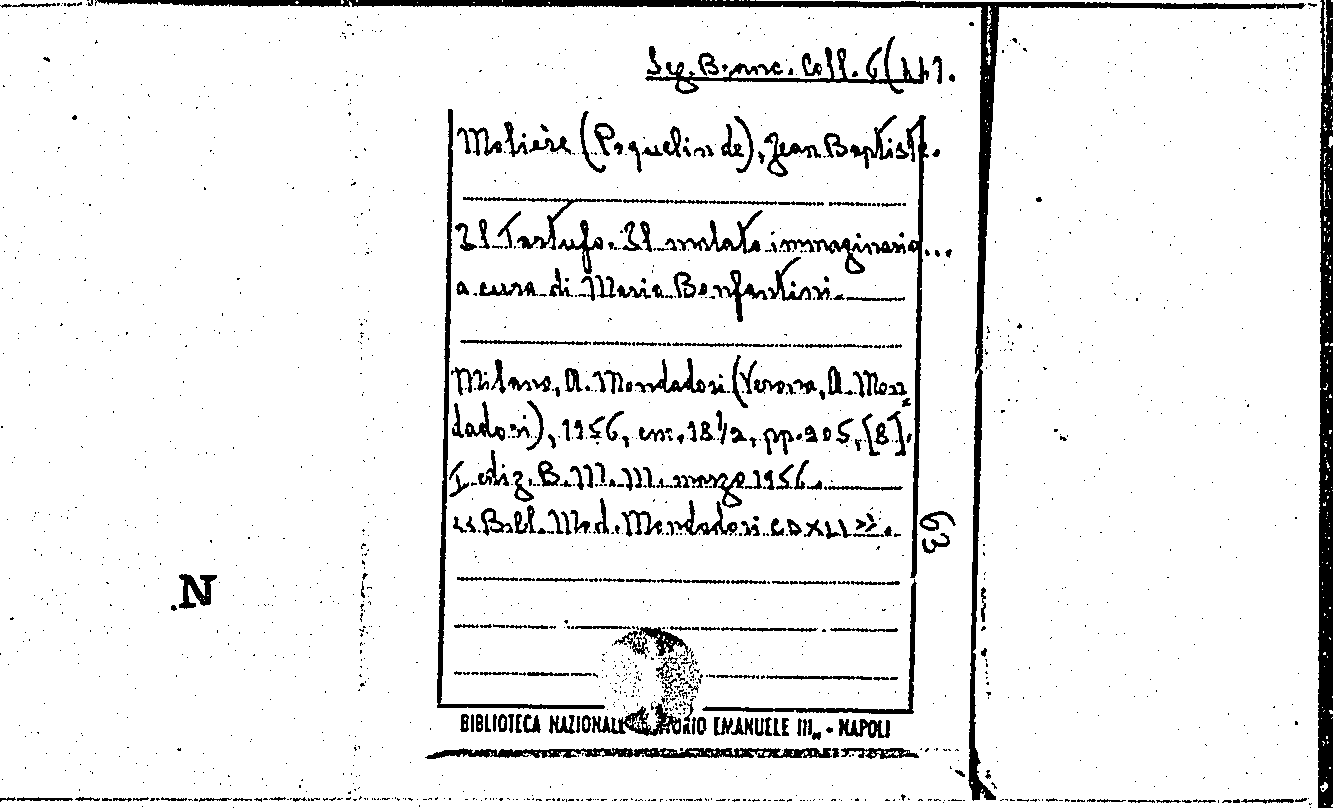 Seg. Branc. Coll. 6(441.
Molière (Poquelin de), Jean Baptiste.
Il Tartufo. Il malato immaginario...
a cura di Mario Bonfantini.
Milano, A. Mondadori (Verona, A. Mon=
dadori), 1956, cm. 18½, pp. 205, [8].
I ediz. B. M. M. marzo 1956.
"Bibl. Mod. Mondadori CDXLI».
63
N
BIBLIOTECA NAZIONALE EMANUELE III„ - NAPOLI